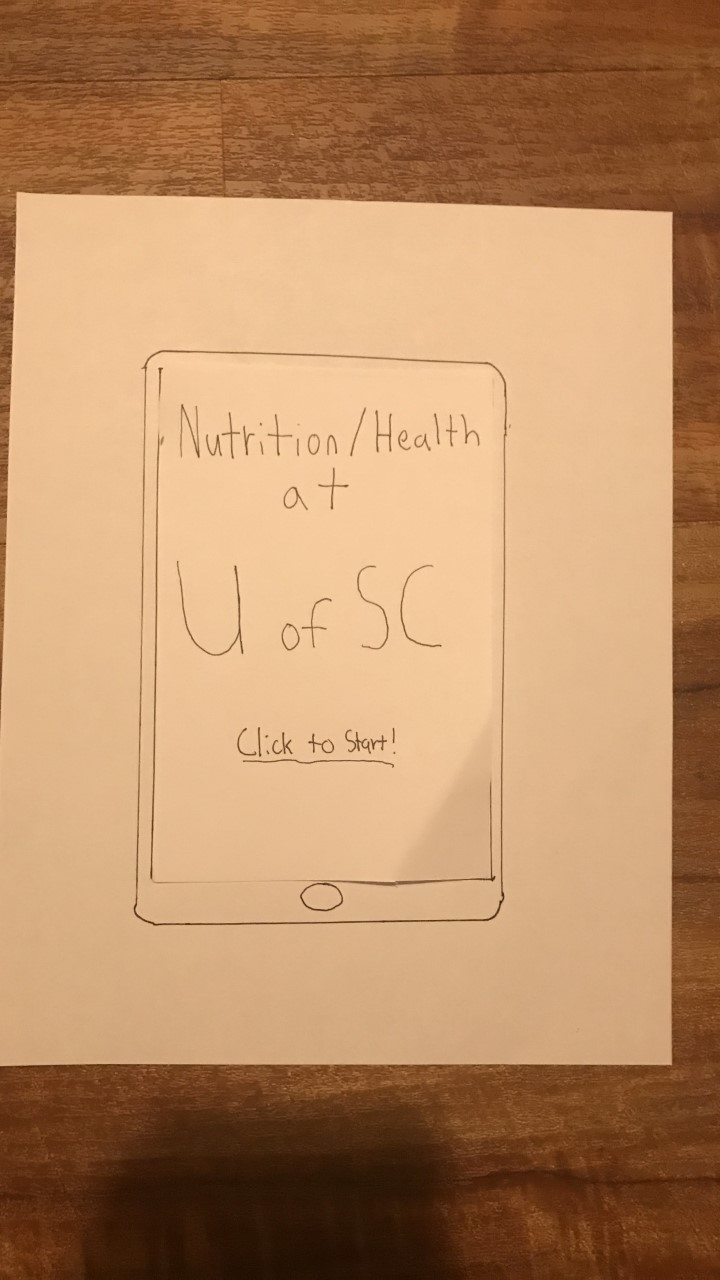 Nutrition/Health
at
U of SC
Click to Start!